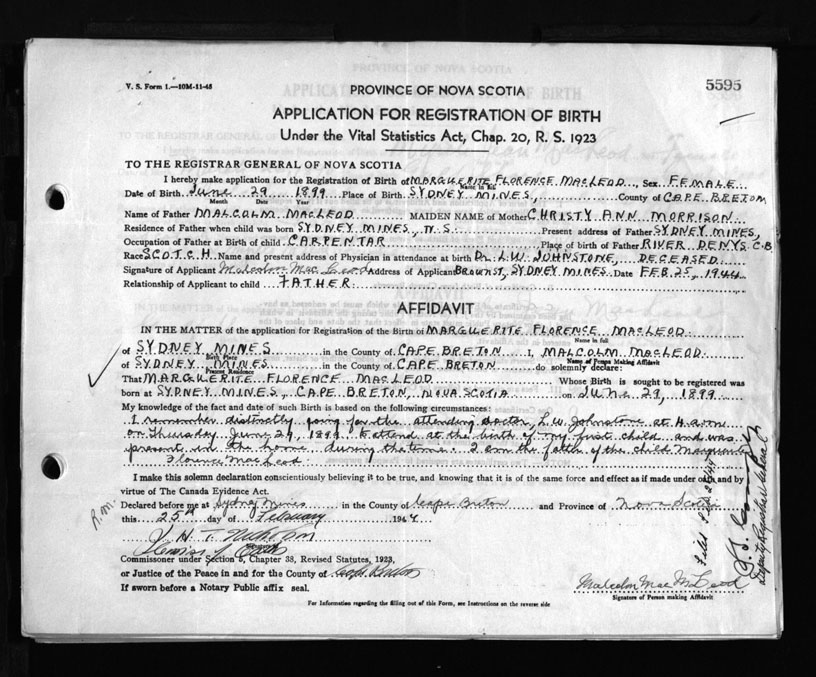 V. S. Form 1.—10M-11-43
5595
PROVINCE OF NOVA SCOTIA
APPLICATION FOR REGISTRATION OF BIRTH
Under the Vital Statistics Act, Chap. 20, R. S. 1923
TO THE REGISTRAR GENERAL OF NOVA SCOTIA
I hereby make application for the Registration of Birth of MARGUERITE FLORENCE MACLEOD, Sex FEMALE
Name in full
Date of Birth June 29 1899 Place of Birth SYDNEY MINES, County of CAPE BRETON
Month Date Year
Name of Father MALCOLM MACLEOD MAIDEN NAME of Mother CHRISTY ANN MORRISON
Residence of Father when child was born SYDNEY MINES, N.S. Present address of Father SYDNEY MINES,
Occupation of Father at Birth of child CARPENTAR Place of birth of Father RIVER DENYS C.B
Race SCOTCH Name and present address of Physician in attendance at birth DR. L.W. JOHNSTONE, DECEASED
Signature of Applicant Malcolm Mac Leod Address of Applicant BROWN ST, SYDNEY MINES Date FEB. 25, 1944
Relationship of Applicant to child FATHER
AFFIDAVIT
IN THE MATTER of the application for Registration of the Birth of MARGUERITE FLORENCE MACLEOD
Name in full
of SYDNEY MINES in the County of CAPE BRETON I, MALCOLM MACLEOD
Birth Place Name of Person Making Affidavit
of SYDNEY MINES in the County of CAPE BRETON do solemnly declare:
Present Residence
That MARGUERITE FLORENCE MACLEOD Whose Birth is sought to be registered was
born at SYDNEY MINES, CAPE BRETON, NOVA SCOTIA on June 29, 1899
My knowledge of the fact and date of such Birth is based on the following circumstances:
I remember distinctly going for the attending doctor, L.W. Johnstone at 4 a.m
on Thursday June 29, 1899 to attend at the birth of my first child and was
present in the home during the time. I am the father of the child Marguerite
Florence MacLeod.
I make this solemn declaration conscientiously believing it to be true, and knowing that it is of the same force and effect as if made under oath and by
virtue of The Canada Evidence Act.
Declared before me at Sydney Mines in the County of Cape Breton and Province of Nova Scotia
this 25th day of February 1944
Commissioner under Section 5, Chapter 38, Revised Statutes, 1923,
or Justice of the Peace in and for the County of Cape Breton
If sworn before a Notary Public affix seal.
Malcolm Mac Leod
Signature of Person making Affidavit
For Information regarding the filling out of this Form, see Instructions on the reverse side